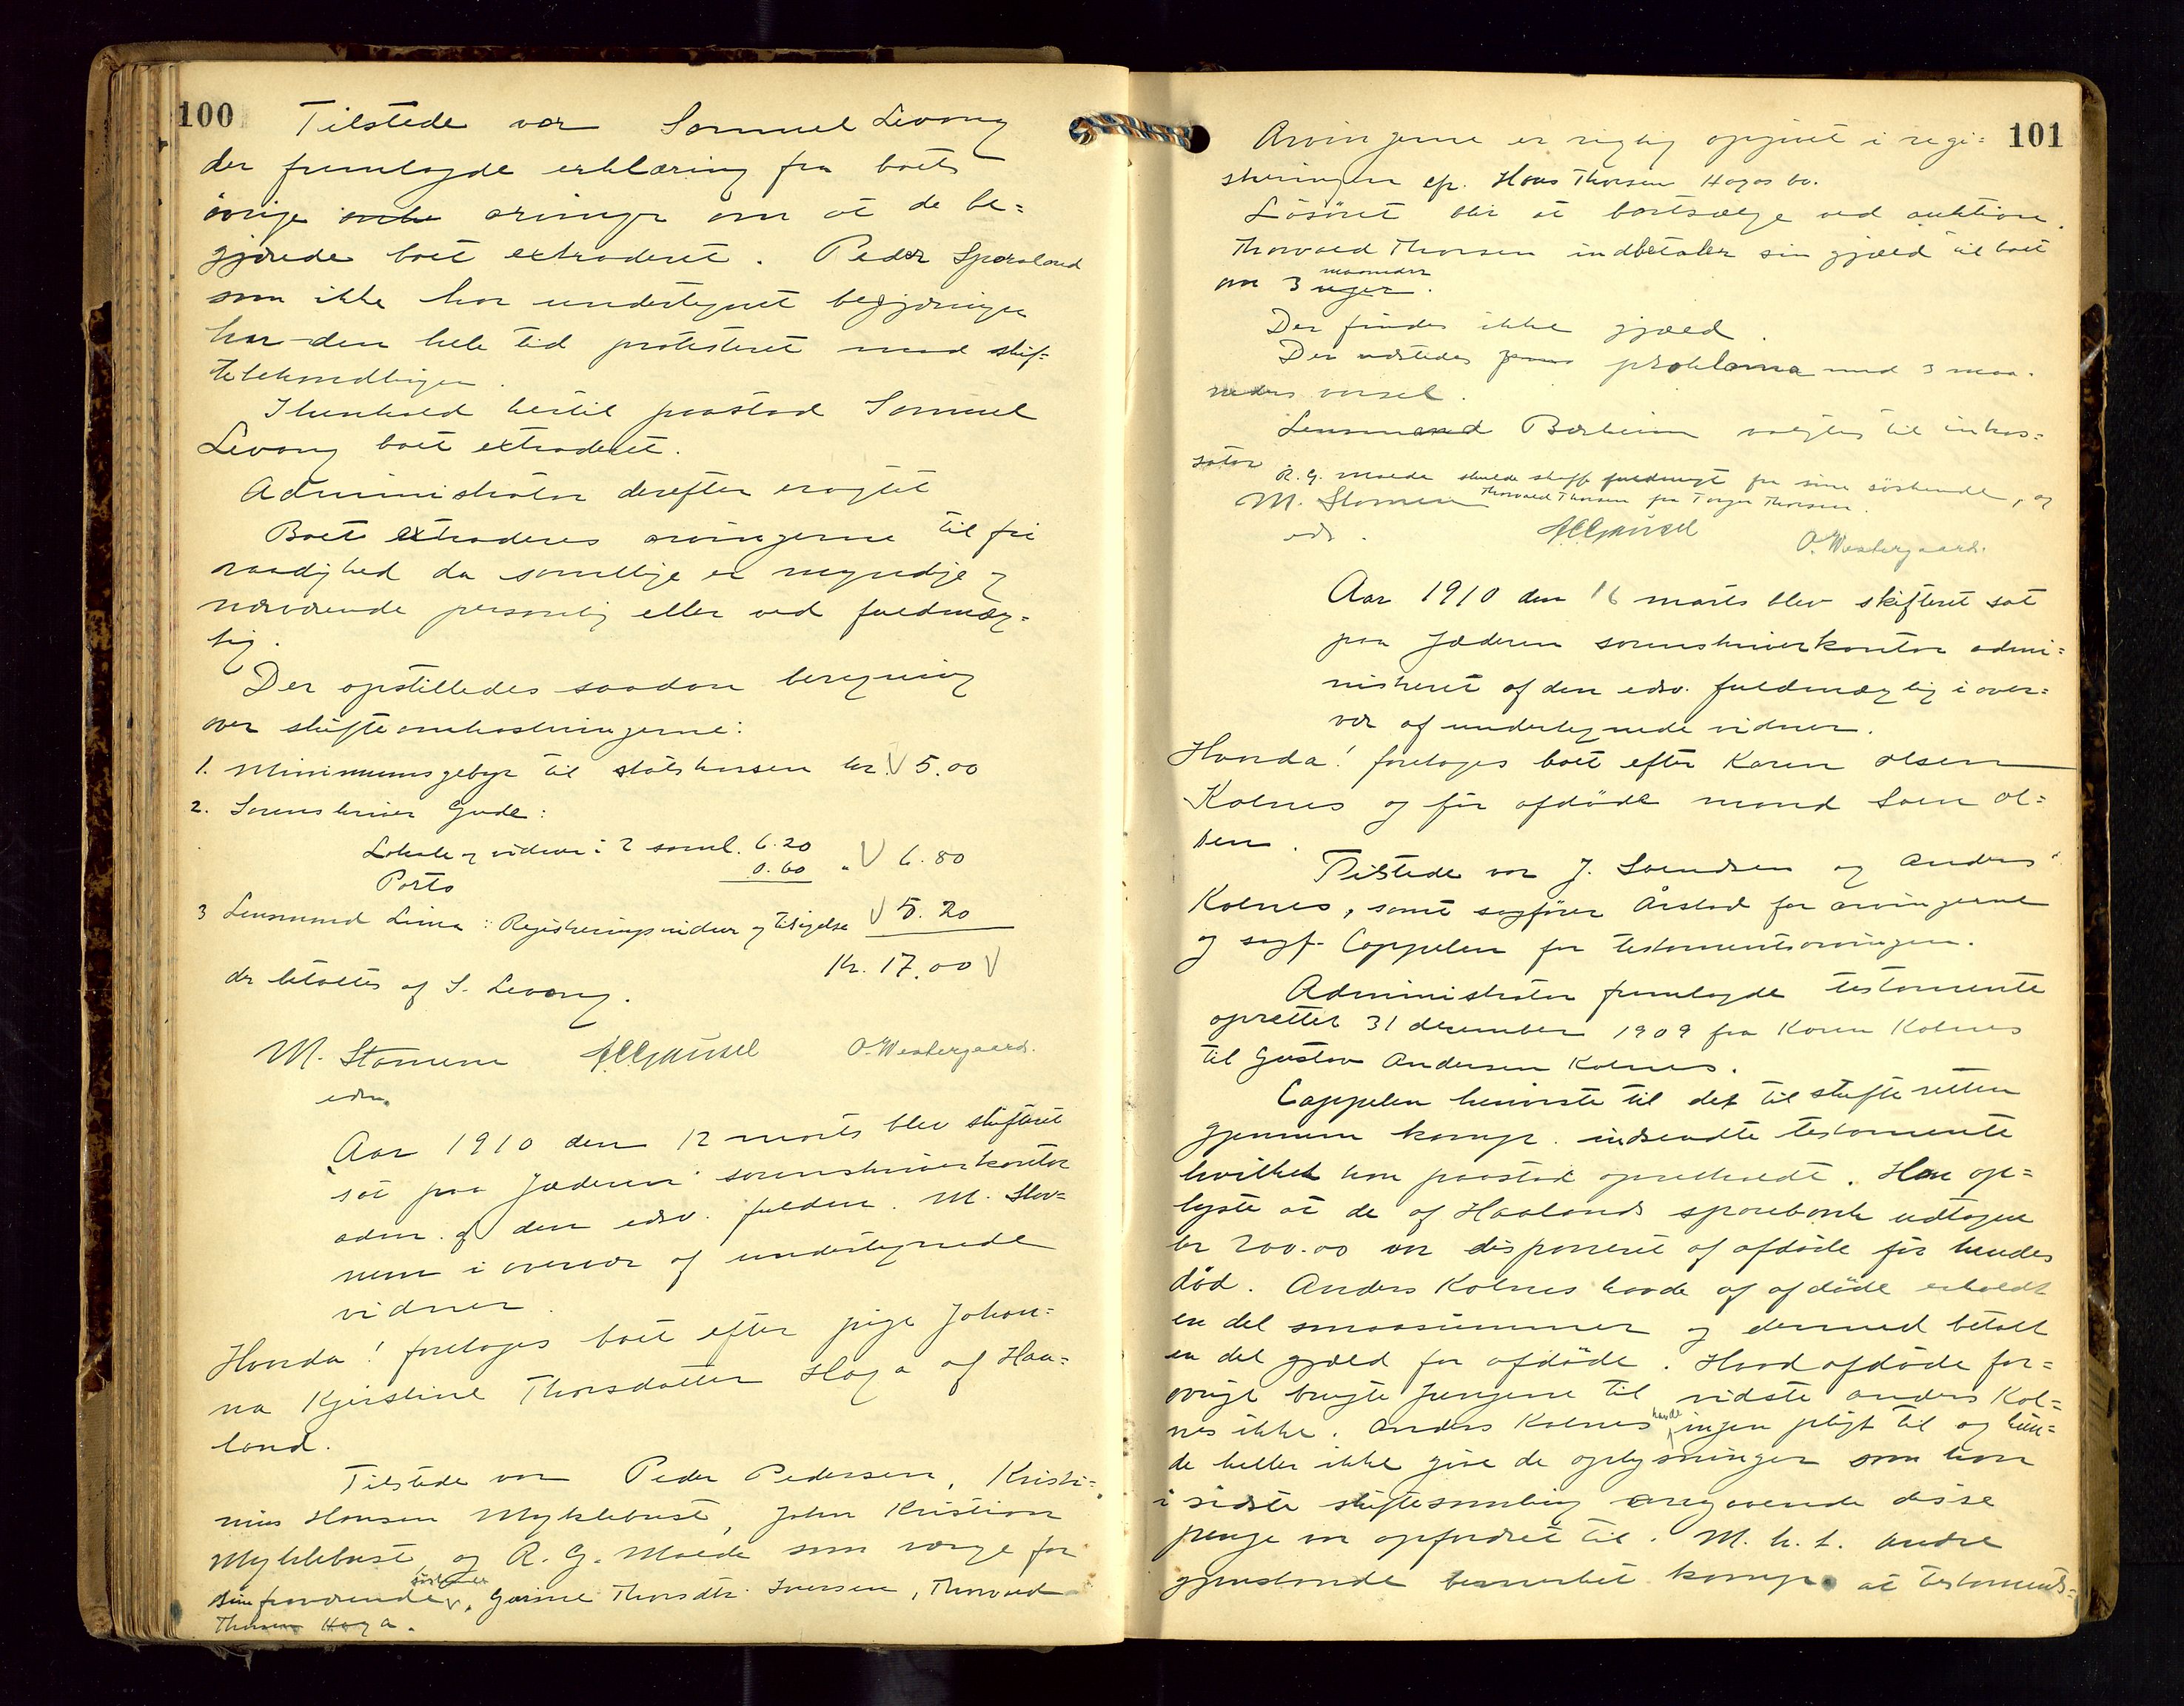 100
Tilstede var Samuel Levang
der fremlagde erklæring fra boets
övrige arvinger om at de be=
gjærede boet extraderet. Peder Spæraland
som ikke har undertegnet begjæringen
har den hele tid protesteret mod skif=
tebehandlingen.
I henhold hertil paastod Samuel
Levang boet extraderet.
Administrator derefter eragtet
Boet extraderes arvingerne til fri
raadighed da samtlige er myndige og
nærværende personlig eller ved fuldmæg=
tig.
Der opstilledes saadan beregning
over skifteomkostningerne:
1. Minimumsgebyr til statskassen kr. 5.00
2. Sorenskriver Gude:
Lokale og vidner i 2 saml. 6.20
Porto 0.60 " 6.80
3 Lensmand Lima: Registreringsvidner og tilsigelse 5.20
Kr. 17.00
der betaltes af S. Levang.
M. Stamem A.C. Gausel O. Westergaard.
edsv.
Aar 1910 den 12 marts blev skifteret
sat paa Jæderen sorenskriverkontor
adm. af den edsv. fuldm. M. Sta=
nem i overvær af undertegnede
vidner.
Hvorda! foretoges boet efter pige Johan=
na Kjerstine Thorsdatter Haga af Haa=
land.
Tilstede var Peder Pedersen, Kristi=
nius Hansen Myklebust, John Kristian
Myklebust, og R. G. Malde som værge for
sine fraværende söskende, Gurine Thorsdtr. Iversen, Thorvald
Thorsen Haga.
101
Arvingerne er rigtig opgivet i regi=
streringen efr. Hans Thorsen Hagas bo.
Lösöret blir at bortsælge ved auktion.
Thorvald Thorsen indbetaler sin gjæld til boet
om 3 uger maaneder.
Der findes ikke gjæld.
Der udstedes proklama med 3 maa=
neders varsel.
Lensmand Børheim valgtes til inkas=
sator.
R. G. Malde skulde skaffe fuldmagt fra sine söskende, og
Thorvald Thorsen fra Torger Thorsen.
M. Stamem A.C. Gausel O. Westergaard.
edsv.
Aar 1910 den 16 marts blev skifteret sat
paa Jæderen sorenskriverkontor admi=
nistreret af den edsv. fuldmægtig i over=
vær af undertegnede vidner.
Hvorda! foretoges boet efter Karen Olsen
Kolnes og för afdöde mand Soen Ol=
sen.
Tilstede var J. Svendsen og Anders
Kolnes, samt sagförer Årstad for arvingerne
og sagf. Cappelen for testamentsarvingen.
Administrator fremlagde testamente
oprettet 31 desember 1909 fra Karen Kolnes
til Gustav Andersen Kolnes.
Cappelen henviste til det til skifteretten
gjennem komp. indsendte testamente
hvilket han paastod opretholdt. Han op=
lyste at de af Haalands sparebank udtagne
kr 200.00 var disponeret af afdöde för hendes
död. Anders Kolnes havde af afdöde erholdt
en del smaasummer og dermed betalt
en del gjæld for afdöde. Hvad afdöde for=
övrigt brugte pengene til vidste Anders Kol=
nes ikke. Anders Kolnes havde ingen pligt til og kun=
de heller ikke give de oplysninger som han
i sidste skiftesamling angaaende disse
penge var opfordret til. M. h. t. andre
gjenstande bemerket komp. at testaments=